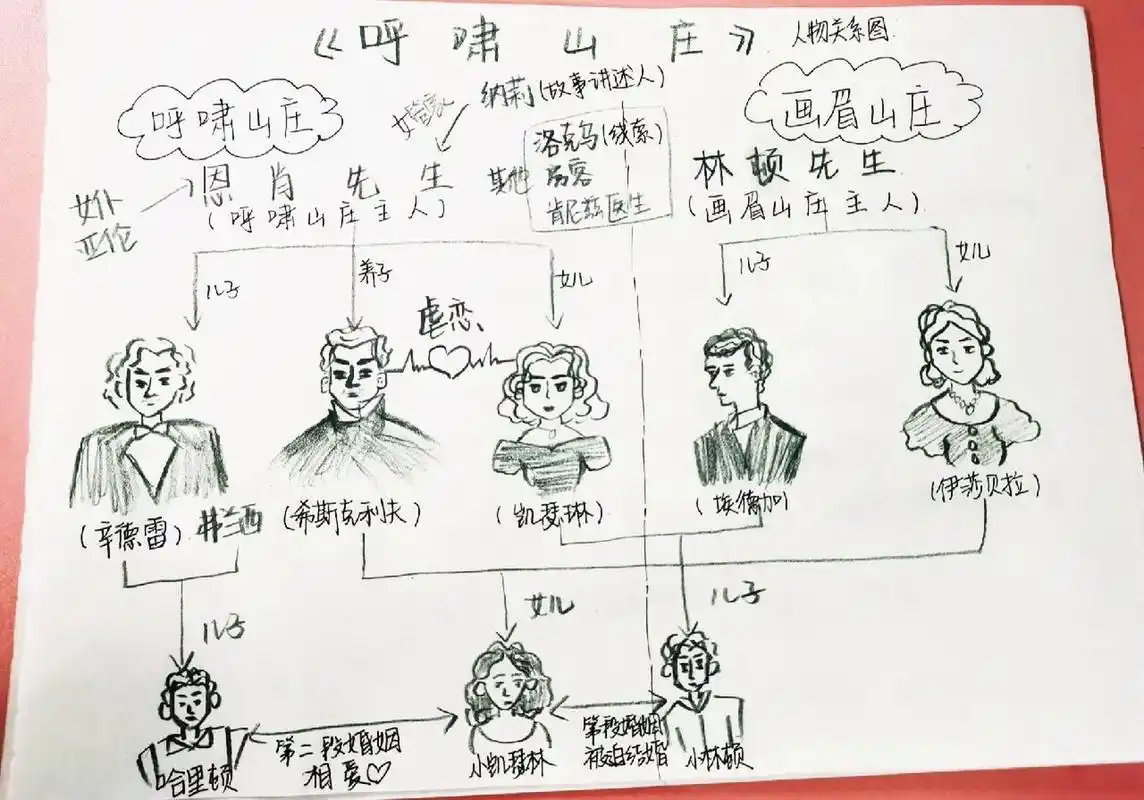 《呼啸山庄》人物关系图
呼啸山庄
女管家
纳莉(故事讲述人)
画眉山庄
洛克乌(线索)
其他 房客
肯尼兹医生
恩肖先生
(呼啸山庄主人)
林顿先生
(画眉山庄主人)
女仆
亚伦
儿子
养子
女儿
儿子
女儿
虐恋
(辛德雷)
弗兰西
(希斯克利夫)
(凯瑟琳)
(埃德加)
(伊莎贝拉)
儿子
女儿
儿子
哈里顿
第二段婚姻
相爱♡
小凯瑟林
第段婚姻
被迫结婚
小林顿